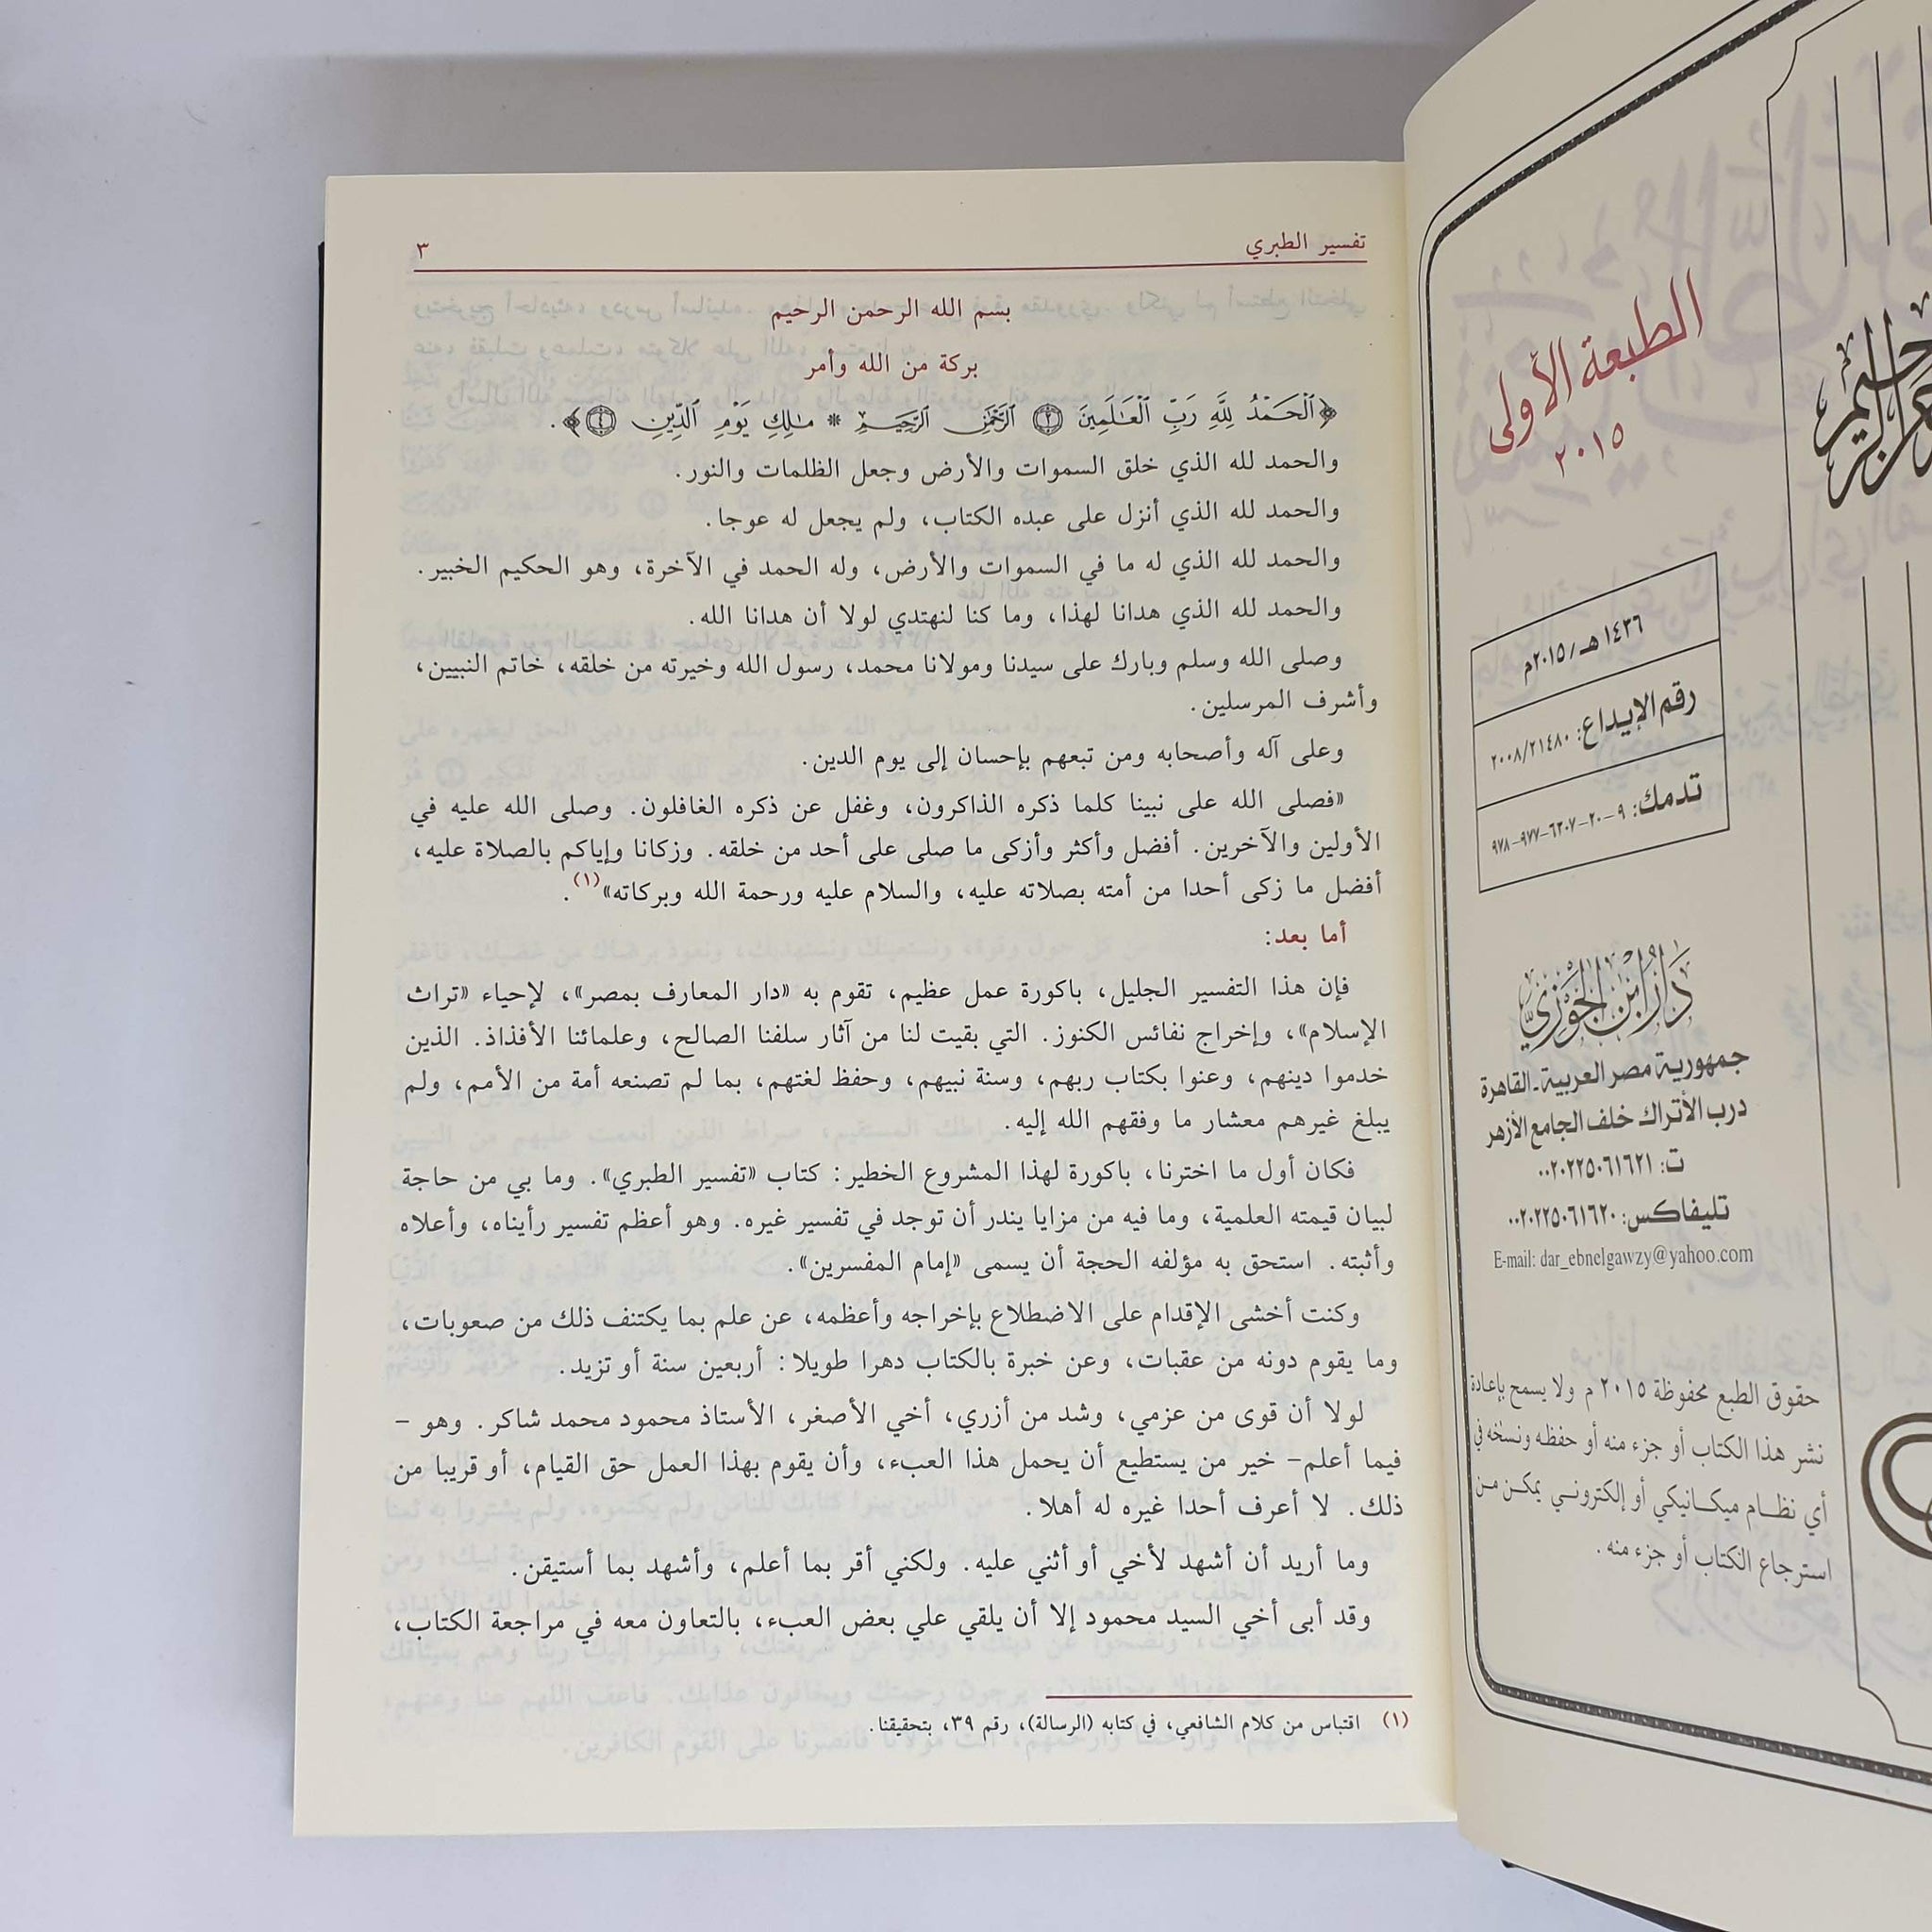 الطبعة الأولى
٢٠١٥
١٤٣٦هـ/٢٠١٥م
رقم الإيداع: ٢٠٠٨/٢١٤٨٠
تدمك: ٩-٢٠-٦٢٠٧-٩٧٧-٩٧٨
دار ابن الجوزي
جمهورية مصر العربية-القاهرة
درب الأتراك خلف الجامع الأزهر
ت: ٠٠٢٠٢٢٥٠٦١٦٢١
تليفاكس: ٠٠٢٠٢٢٥٠٦١٦٢٠
E-mail: dar_ebnelgawzy@yahoo.com
حقوق الطبع محفوظة ٢٠١٥ م ولا يسمح بإعادة
نشر هذا الكتاب أو جزء منه أو حفظه ونسخه في
أي نظام ميكانيكي أو إلكتروني يمكن من
استرجاع الكتاب أو جزء منه.
تفسير الطبري ٣
بسم الله الرحمن الرحيم
بركة من الله وأمر
﴿ٱلْحَمْدُ لِلَّهِ رَبِّ ٱلْعَـٰلَمِينَ ۝٢ ٱلرَّحْمَـٰنِ ٱلرَّحِيمِ * مَـٰلِكِ يَوْمِ ٱلدِّينِ ۝٤﴾.
والحمد لله الذي خلق السموات والأرض وجعل الظلمات والنور.
والحمد لله الذي أنزل على عبده الكتاب، ولم يجعل له عوجا.
والحمد لله الذي له ما في السموات والأرض، وله الحمد في الآخرة، وهو الحكيم الخبير.
والحمد لله الذي هدانا لهذا، وما كنا لنهتدي لولا أن هدانا الله.
وصلى الله وسلم وبارك على سيدنا ومولانا محمد، رسول الله وخيرته من خلقه، خاتم النبيين،
وأشرف المرسلين.
وعلى آله وأصحابه ومن تبعهم بإحسان إلى يوم الدين.
«فصلى الله على نبينا كلما ذكره الذاكرون، وغفل عن ذكره الغافلون. وصلى الله عليه في
الأولين والآخرين. أفضل وأكثر وأزكى ما صلى على أحد من خلقه. وزكانا وإياكم بالصلاة عليه،
أفضل ما زكى أحدا من أمته بصلاته عليه، والسلام عليه ورحمة الله وبركاته»(١).
أما بعد:
فإن هذا التفسير الجليل، باكورة عمل عظيم، تقوم به «دار المعارف بمصر»، لإحياء «تراث
الإسلام»، وإخراج نفائس الكنوز. التي بقيت لنا من آثار سلفنا الصالح، وعلمائنا الأفذاذ. الذين
خدموا دينهم، وعنوا بكتاب ربهم، وسنة نبيهم، وحفظ لغتهم، بما لم تصنعه أمة من الأمم، ولم
يبلغ غيرهم معشار ما وفقهم الله إليه.
فكان أول ما اخترنا، باكورة لهذا المشروع الخطير: كتاب «تفسير الطبري». وما بي من حاجة
لبيان قيمته العلمية، وما فيه من مزايا يندر أن توجد في تفسير غيره. وهو أعظم تفسير رأيناه، وأعلاه
وأثبته. استحق به مؤلفه الحجة أن يسمى «إمام المفسرين».
وكنت أخشى الإقدام على الاضطلاع بإخراجه وأعظمه، عن علم بما يكتنف ذلك من صعوبات،
وما يقوم دونه من عقبات، وعن خبرة بالكتاب دهرا طويلا: أربعين سنة أو تزيد.
لولا أن قوى من عزمي، وشد من أزري، أخي الأصغر، الأستاذ محمود محمد شاكر. وهو -
فيما أعلم- خير من يستطيع أن يحمل هذا العبء، وأن يقوم بهذا العمل حق القيام، أو قريبا من
ذلك. لا أعرف أحدا غيره له أهلا.
وما أريد أن أشهد لأخي أو أثني عليه. ولكني أقر بما أعلم، وأشهد بما أستيقن.
وقد أبى أخي السيد محمود إلا أن يلقي علي بعض العبء، بالتعاون معه في مراجعة الكتاب،
(١) اقتباس من كلام الشافعي، في كتابه (الرسالة)، رقم ٣٩، بتحقيقنا.